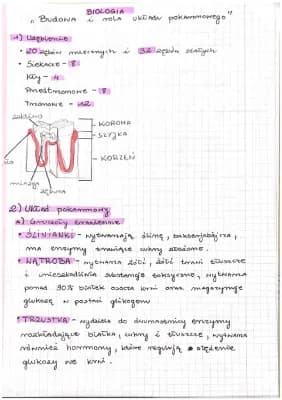 BIOLOGIA
"Budowa i rola układu pokarmowego"
1) Uzębienie
• 20 zębów mlecznych i 32 zębów stałych
• Siekacze - 8
Kły - 4
Przedtrzonowe - 8
Trzonowe - 12
szkliwo
- KORONA
- SZYJKA
- KORZEŃ
miazga
zębina
2) Układ pokarmowy
a) Gruczoły
• ŚLINIANKI - wytwarzają ślinę, bakteriobójcza,
ma enzymy trawiące cukry złożone.
• WĄTROBA - wytwarza żółć, żółć trawi tłuszcze
i unieszkodliwia substancje toksyczne, wytwarza
ponad 90% białek osocza krwi oraz magazynuje
glukozę w postaci glikogenu
• TRZUSTKA - wydziela do dwunastnicy enzymy
rozkładające białka, cukry i tłuszcze, wytwarza
również hormony, które regulują stężenie
glukozy we krwi.